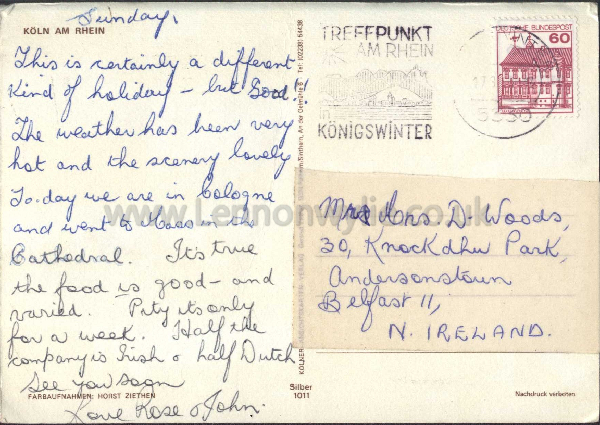 Sunday.
KÖLN AM RHEIN
This is certainly a different
kind of holiday - but Good!
The weather has been very
hot and the scenery lovely
To-day we are in Cologne
and went to Mass in the
Cathedral. It's true
the food is good - and
varied. Pity its only
for a week. Half the
company is Irish & half Dutch
See you soon
Love Rose & John.
FARBAUFNAHMEN: HORST ZIETHEN
Silber
1011
Nachdruck verboten
TREFFPUNKT
AM RHEIN
KÖNIGSWINTER
DEUTSCHE BUNDESPOST
60
5330
Mrs D. Woods,
30, Knockdhu Park,
Andersonstown
Belfast 11,
N. IRELAND.
www.Lennonwylie.co.uk